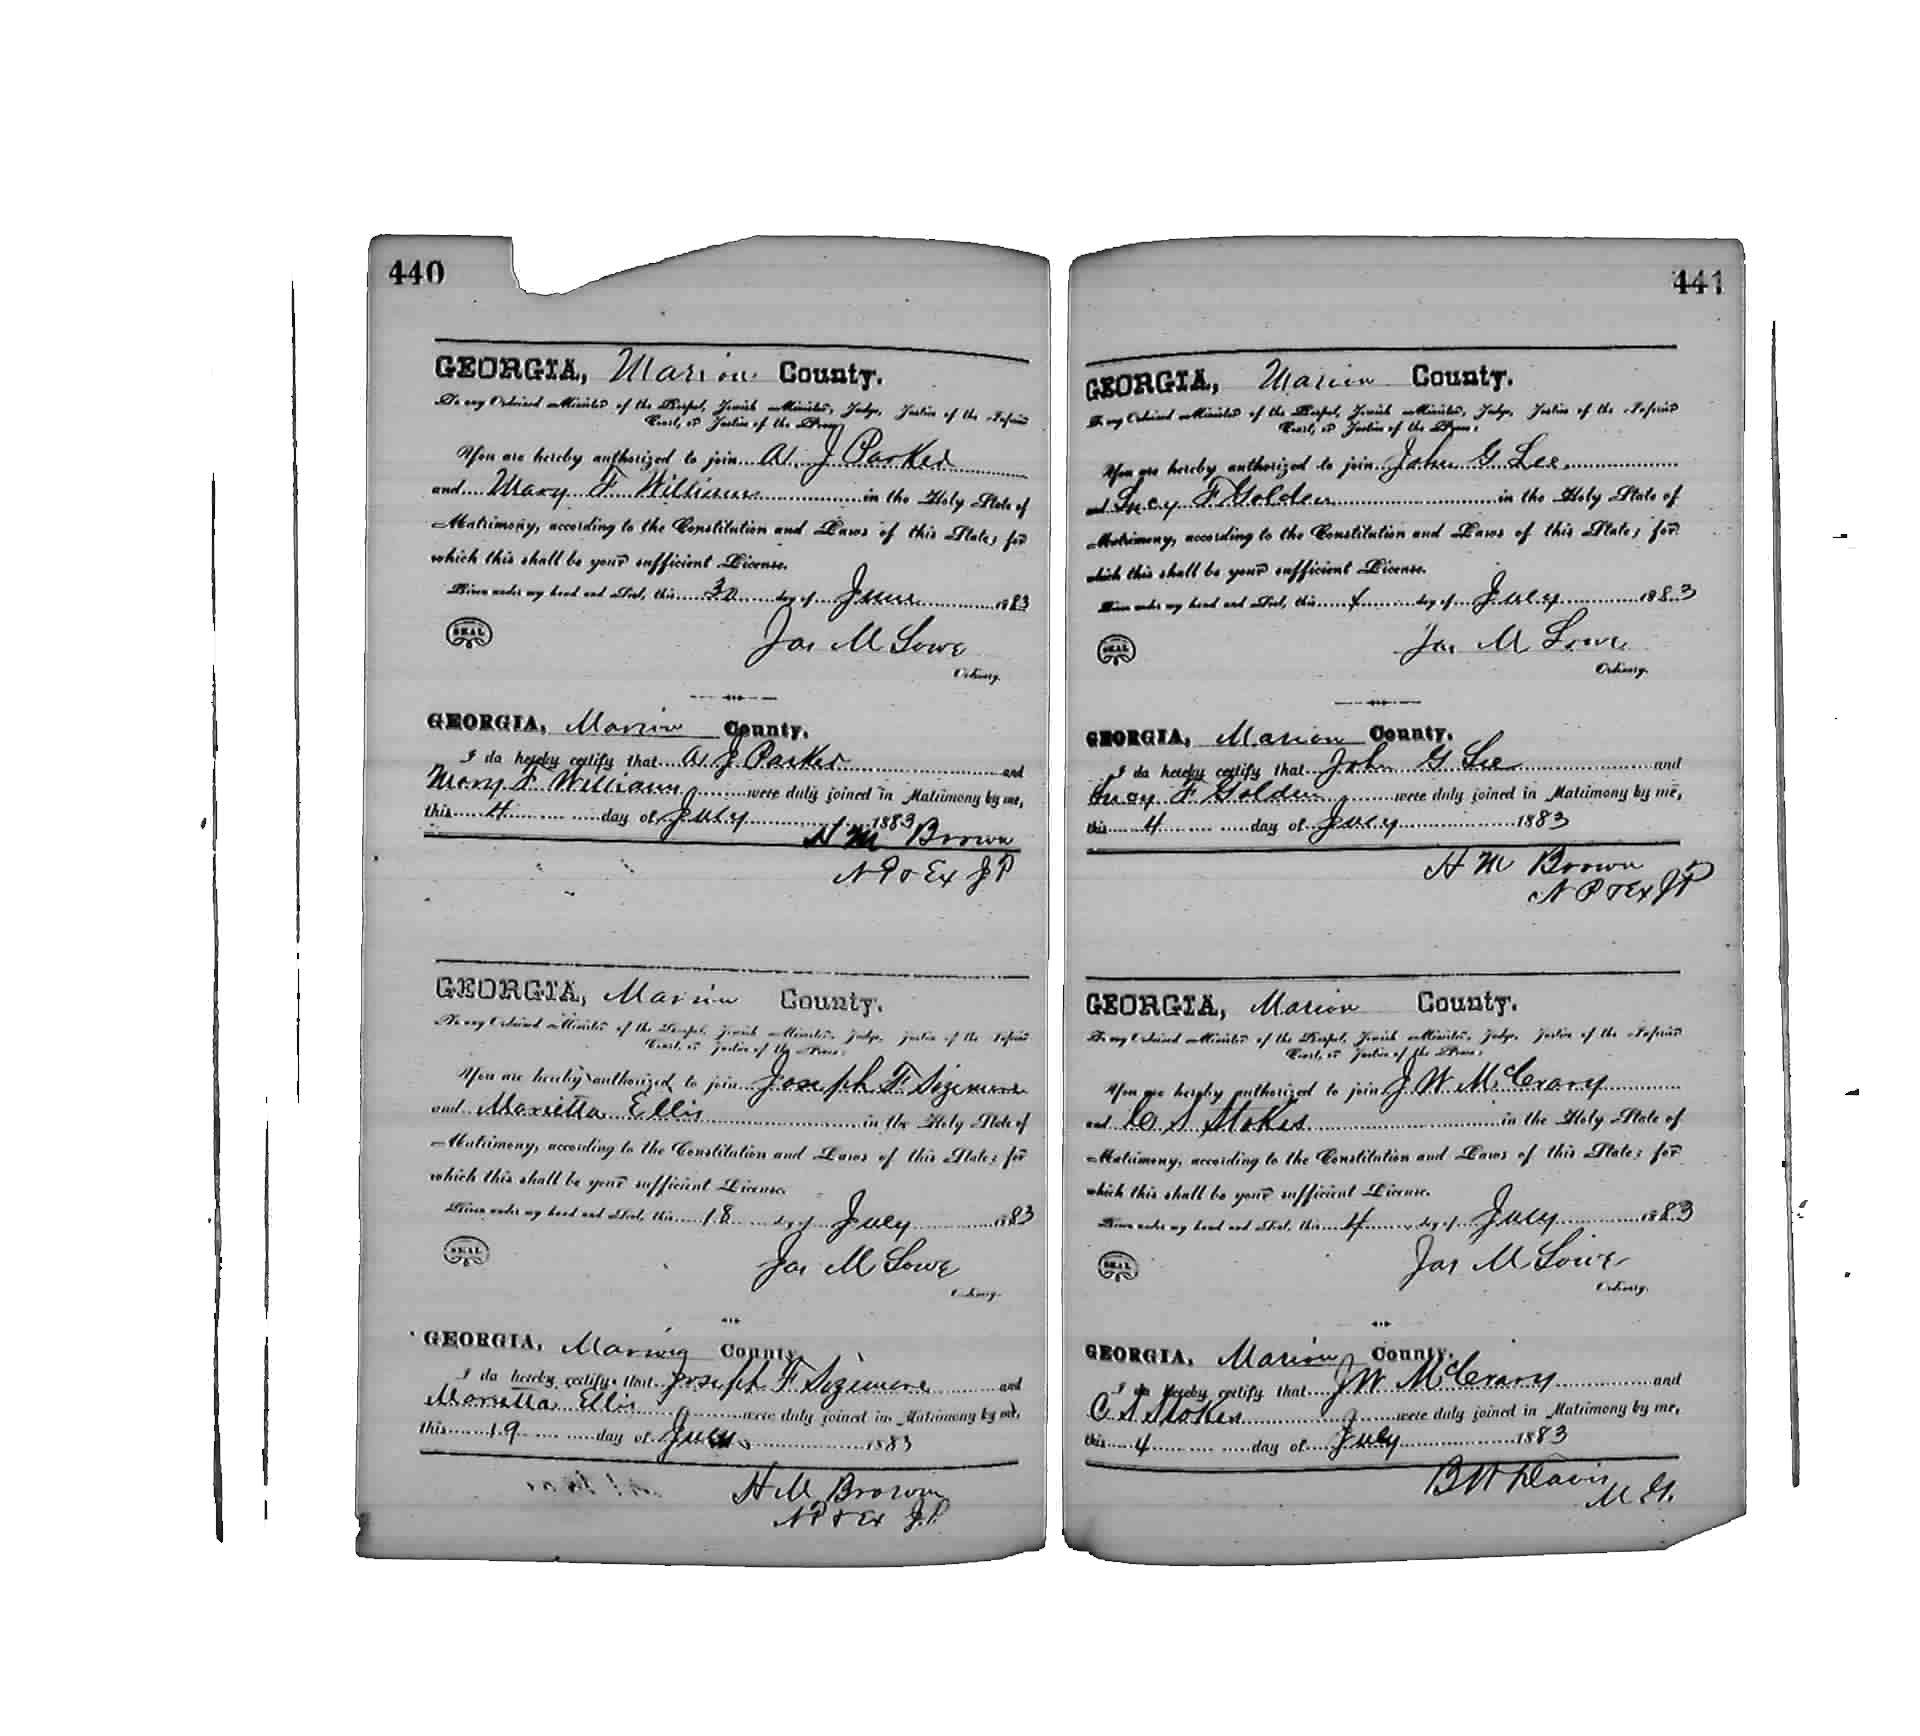 440
GEORGIA, Marion County.
To any Ordained Minister of the Gospel, Jewish Minister, Judge, Justice of the Inferior
Court, or Justice of the Peace:
You are hereby authorized to join A. J Parker
and Mary F Williams in the Holy State of
Matrimony, according to the Constitution and Laws of this State; for
which this shall be your sufficient License.
Given under my hand and Seal, this 30 day of June 1883
SEAL
Jas M Lowe
Ordinary.
GEORGIA, Marion County.
I do hereby certify that A J Parker and
Mary F Williams were duly joined in Matrimony by me,
this 4 day of July 1883
H M Brown
N P & Ex J P
GEORGIA, Marion County.
To any Ordained Minister of the Gospel, Jewish Minister, Judge, Justice of the Inferior
Court, or Justice of the Peace:
You are hereby authorized to join Joseph F Sizemore
and Marietta Ellis in the Holy State of
Matrimony, according to the Constitution and Laws of this State; for
which this shall be your sufficient License.
Given under my hand and Seal, this 18 day of July 1883
SEAL
Jas M Lowe
Ordinary.
GEORGIA, County.
I do hereby certify that Joseph F Sizemore and
Marietta Ellis were duly joined in Matrimony by me,
this 19 day of July 1883
H M Brown
N P & Ex J.P.
441
GEORGIA, Marion County.
To any Ordained Minister of the Gospel, Jewish Minister, Judge, Justice of the Inferior
Court, or Justice of the Peace:
You are hereby authorized to join John G Lee
and Lucy F Golden in the Holy State of
Matrimony, according to the Constitution and Laws of this State; for
which this shall be your sufficient License.
Given under my hand and Seal, this 4 day of July 1883
SEAL
Jas M Lowe
Ordinary.
GEORGIA, Marion County.
I do hereby certify that John G Lee and
Lucy F Golden were duly joined in Matrimony by me,
this 4 day of July 1883
H M Brown
N P & Ex J P
GEORGIA, Marion County.
To any Ordained Minister of the Gospel, Jewish Minister, Judge, Justice of the Inferior
Court, or Justice of the Peace:
You are hereby authorized to join J W McCrary
and C S Stokes in the Holy State of
Matrimony, according to the Constitution and Laws of this State; for
which this shall be your sufficient License.
Given under my hand and Seal, this 4 day of July 1883
SEAL
Jas M Lowe
Ordinary.
GEORGIA, Marion County.
I do hereby certify that J W McCrary and
C S Stokes were duly joined in Matrimony by me,
this 4 day of July 1883
B W Davis
M G.